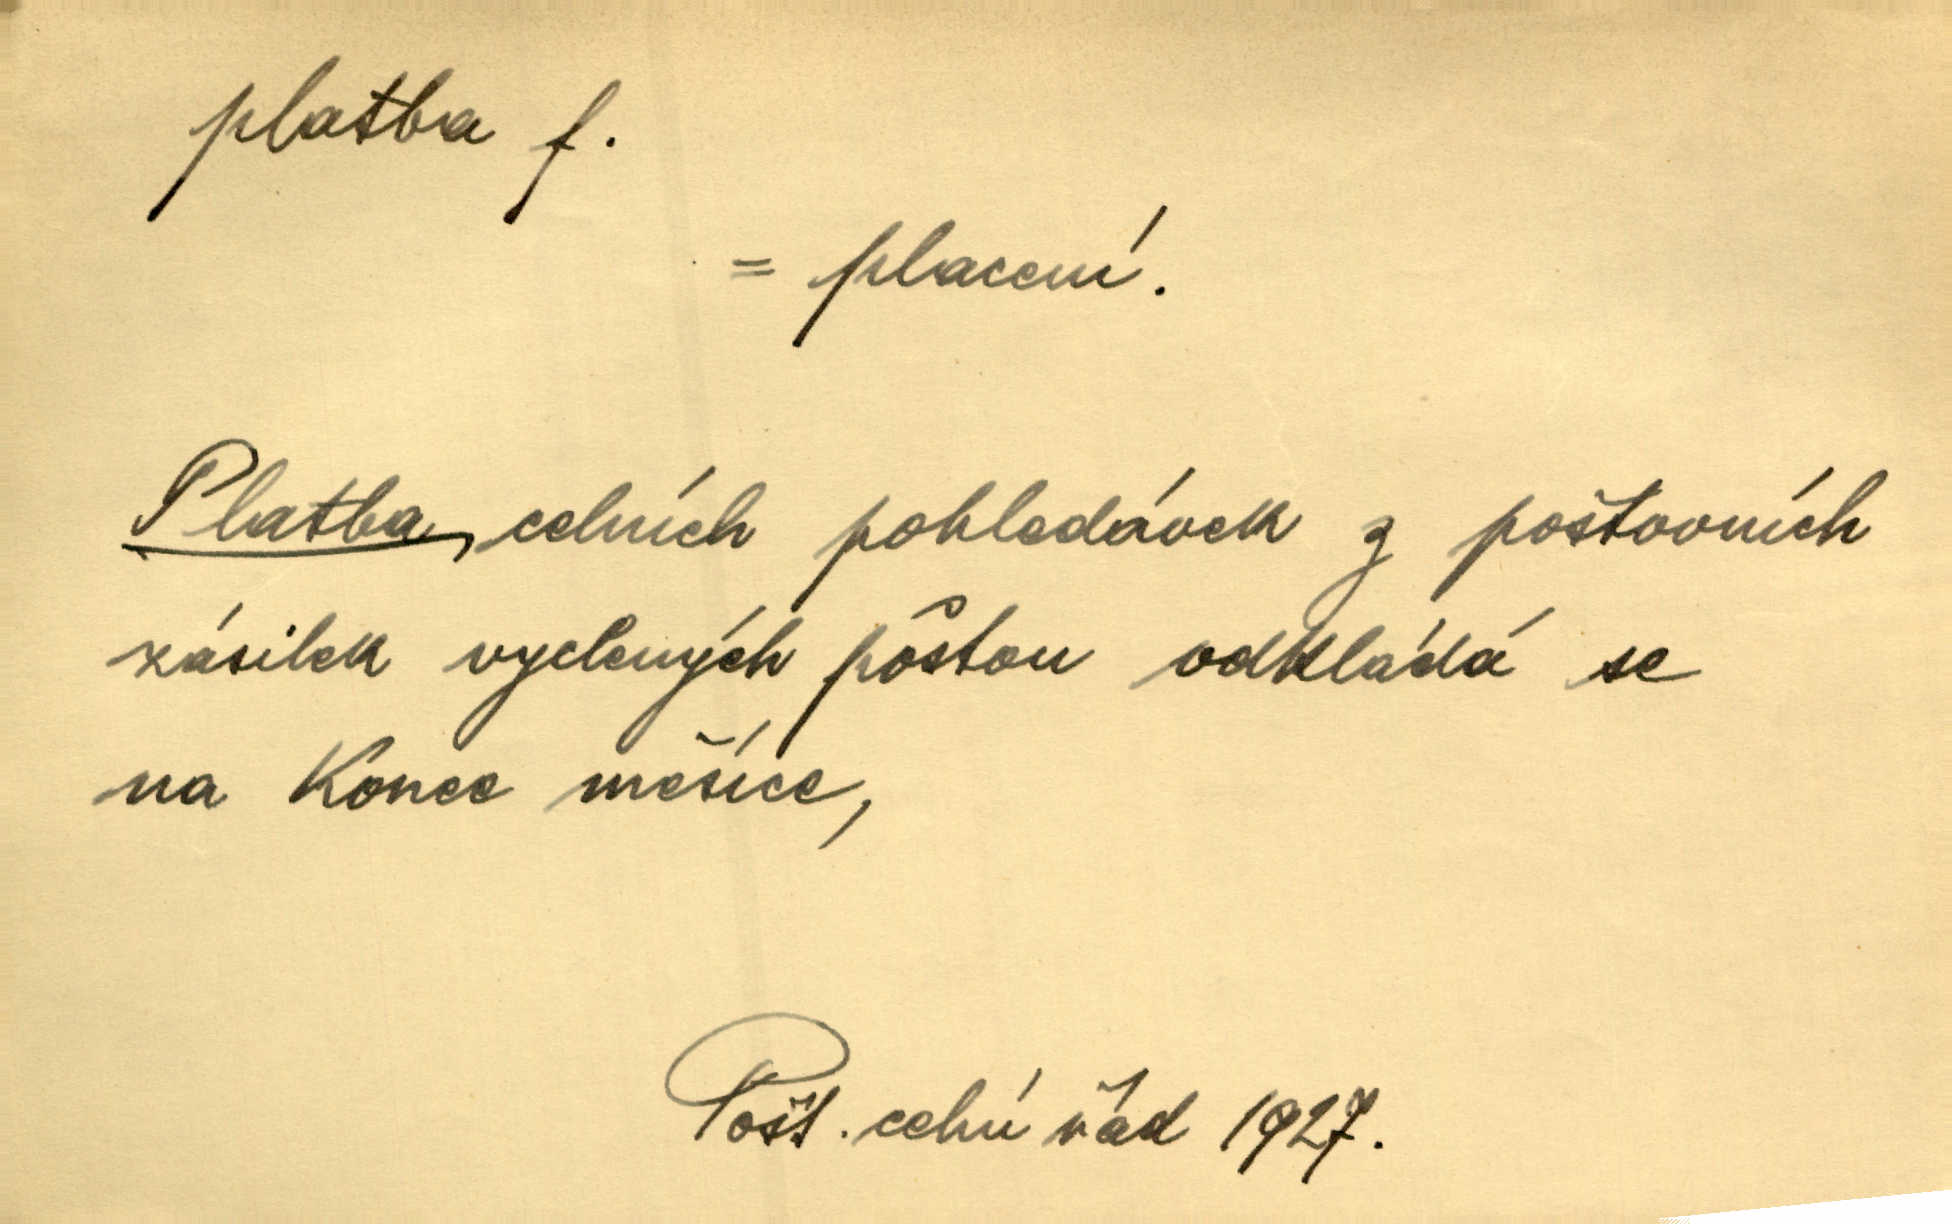 platba f.
= placení.
Platba celních pohledávek z poštovních
zásilek vyclených poštou odkládá se
na konec měsíce,
Pošt. celní řád 1927.